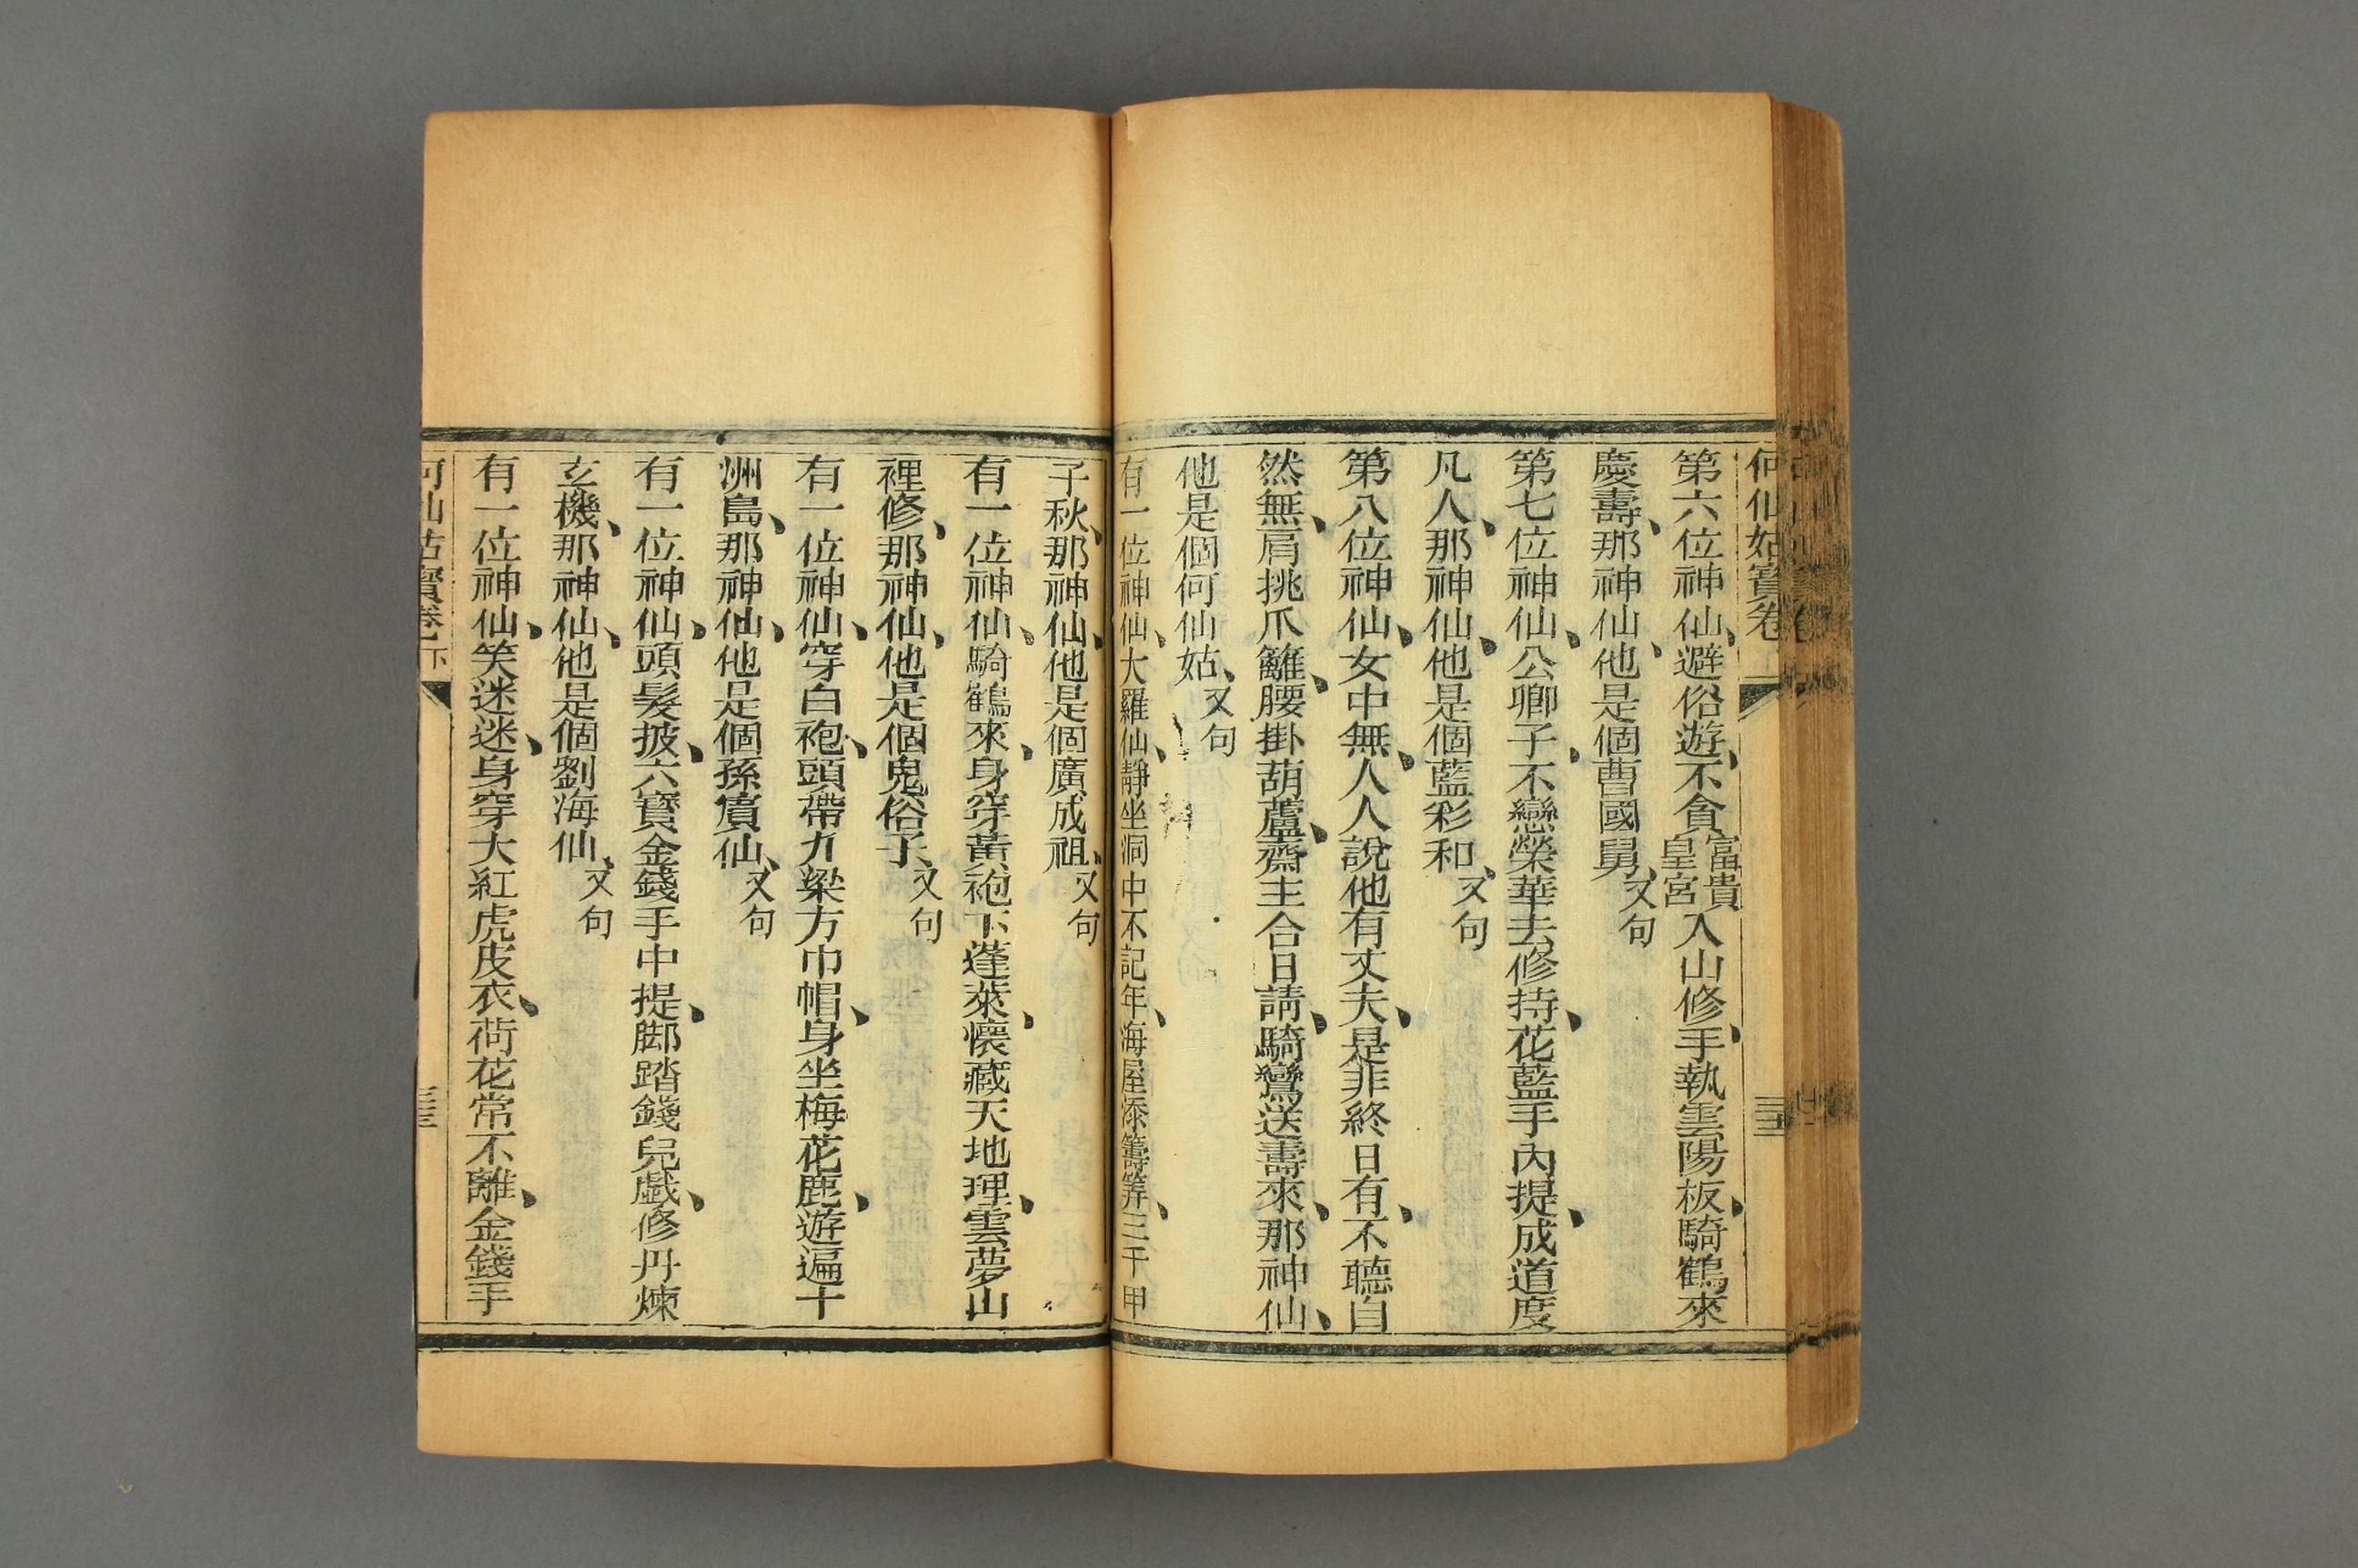 何仙姑寶卷
第六位神仙、避俗遊、不貪富貴皇宮入山修、手執雲陽板、騎鶴來
慶壽、那神仙、他是個曹國舅、又句
第七位神仙、公卿子、不戀榮華去修持、花藍手內提、成道度
凡人、那神仙、他是個藍彩和、又句
第八位神仙、女中無、人人說他有丈夫、是非終日有、不聽自
然無、肩挑爪籬、腰掛葫蘆、齋主合日請、騎鸞送壽來、那神仙、
他是個何仙姑、又句
有一位神仙、大羅仙、靜坐洞中不記年、海屋添籌筭、三千甲
子秋、那神仙、他是個廣成祖、又句
有一位神仙、騎鶴來、身穿黃袍下蓬萊、懷藏天地理、雲夢山
裡修、那神仙、他是個鬼俗子、又句
有一位神仙、穿白袍、頭帶九梁方巾帽、身坐梅花鹿、遊遍十
洲島、那神仙、他是個孫賔仙、又句
有一位神仙、頭髮披、六寳金錢手中提、脚踏錢兒戯、修丹煉
玄機、那神仙、他是個劉海仙、又句
有一位神仙、笑迷迷、身穿大紅虎皮衣、荷花常不離、金錢手
何仙姑寶卷 下
三三